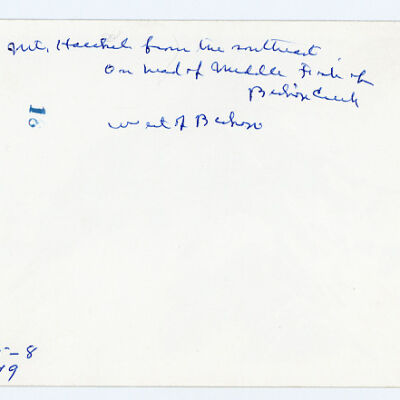 Mt. Haeckel from the southeast
on head of Middle Fork of
Bishop Creek
west of Bishop
16
-8
49